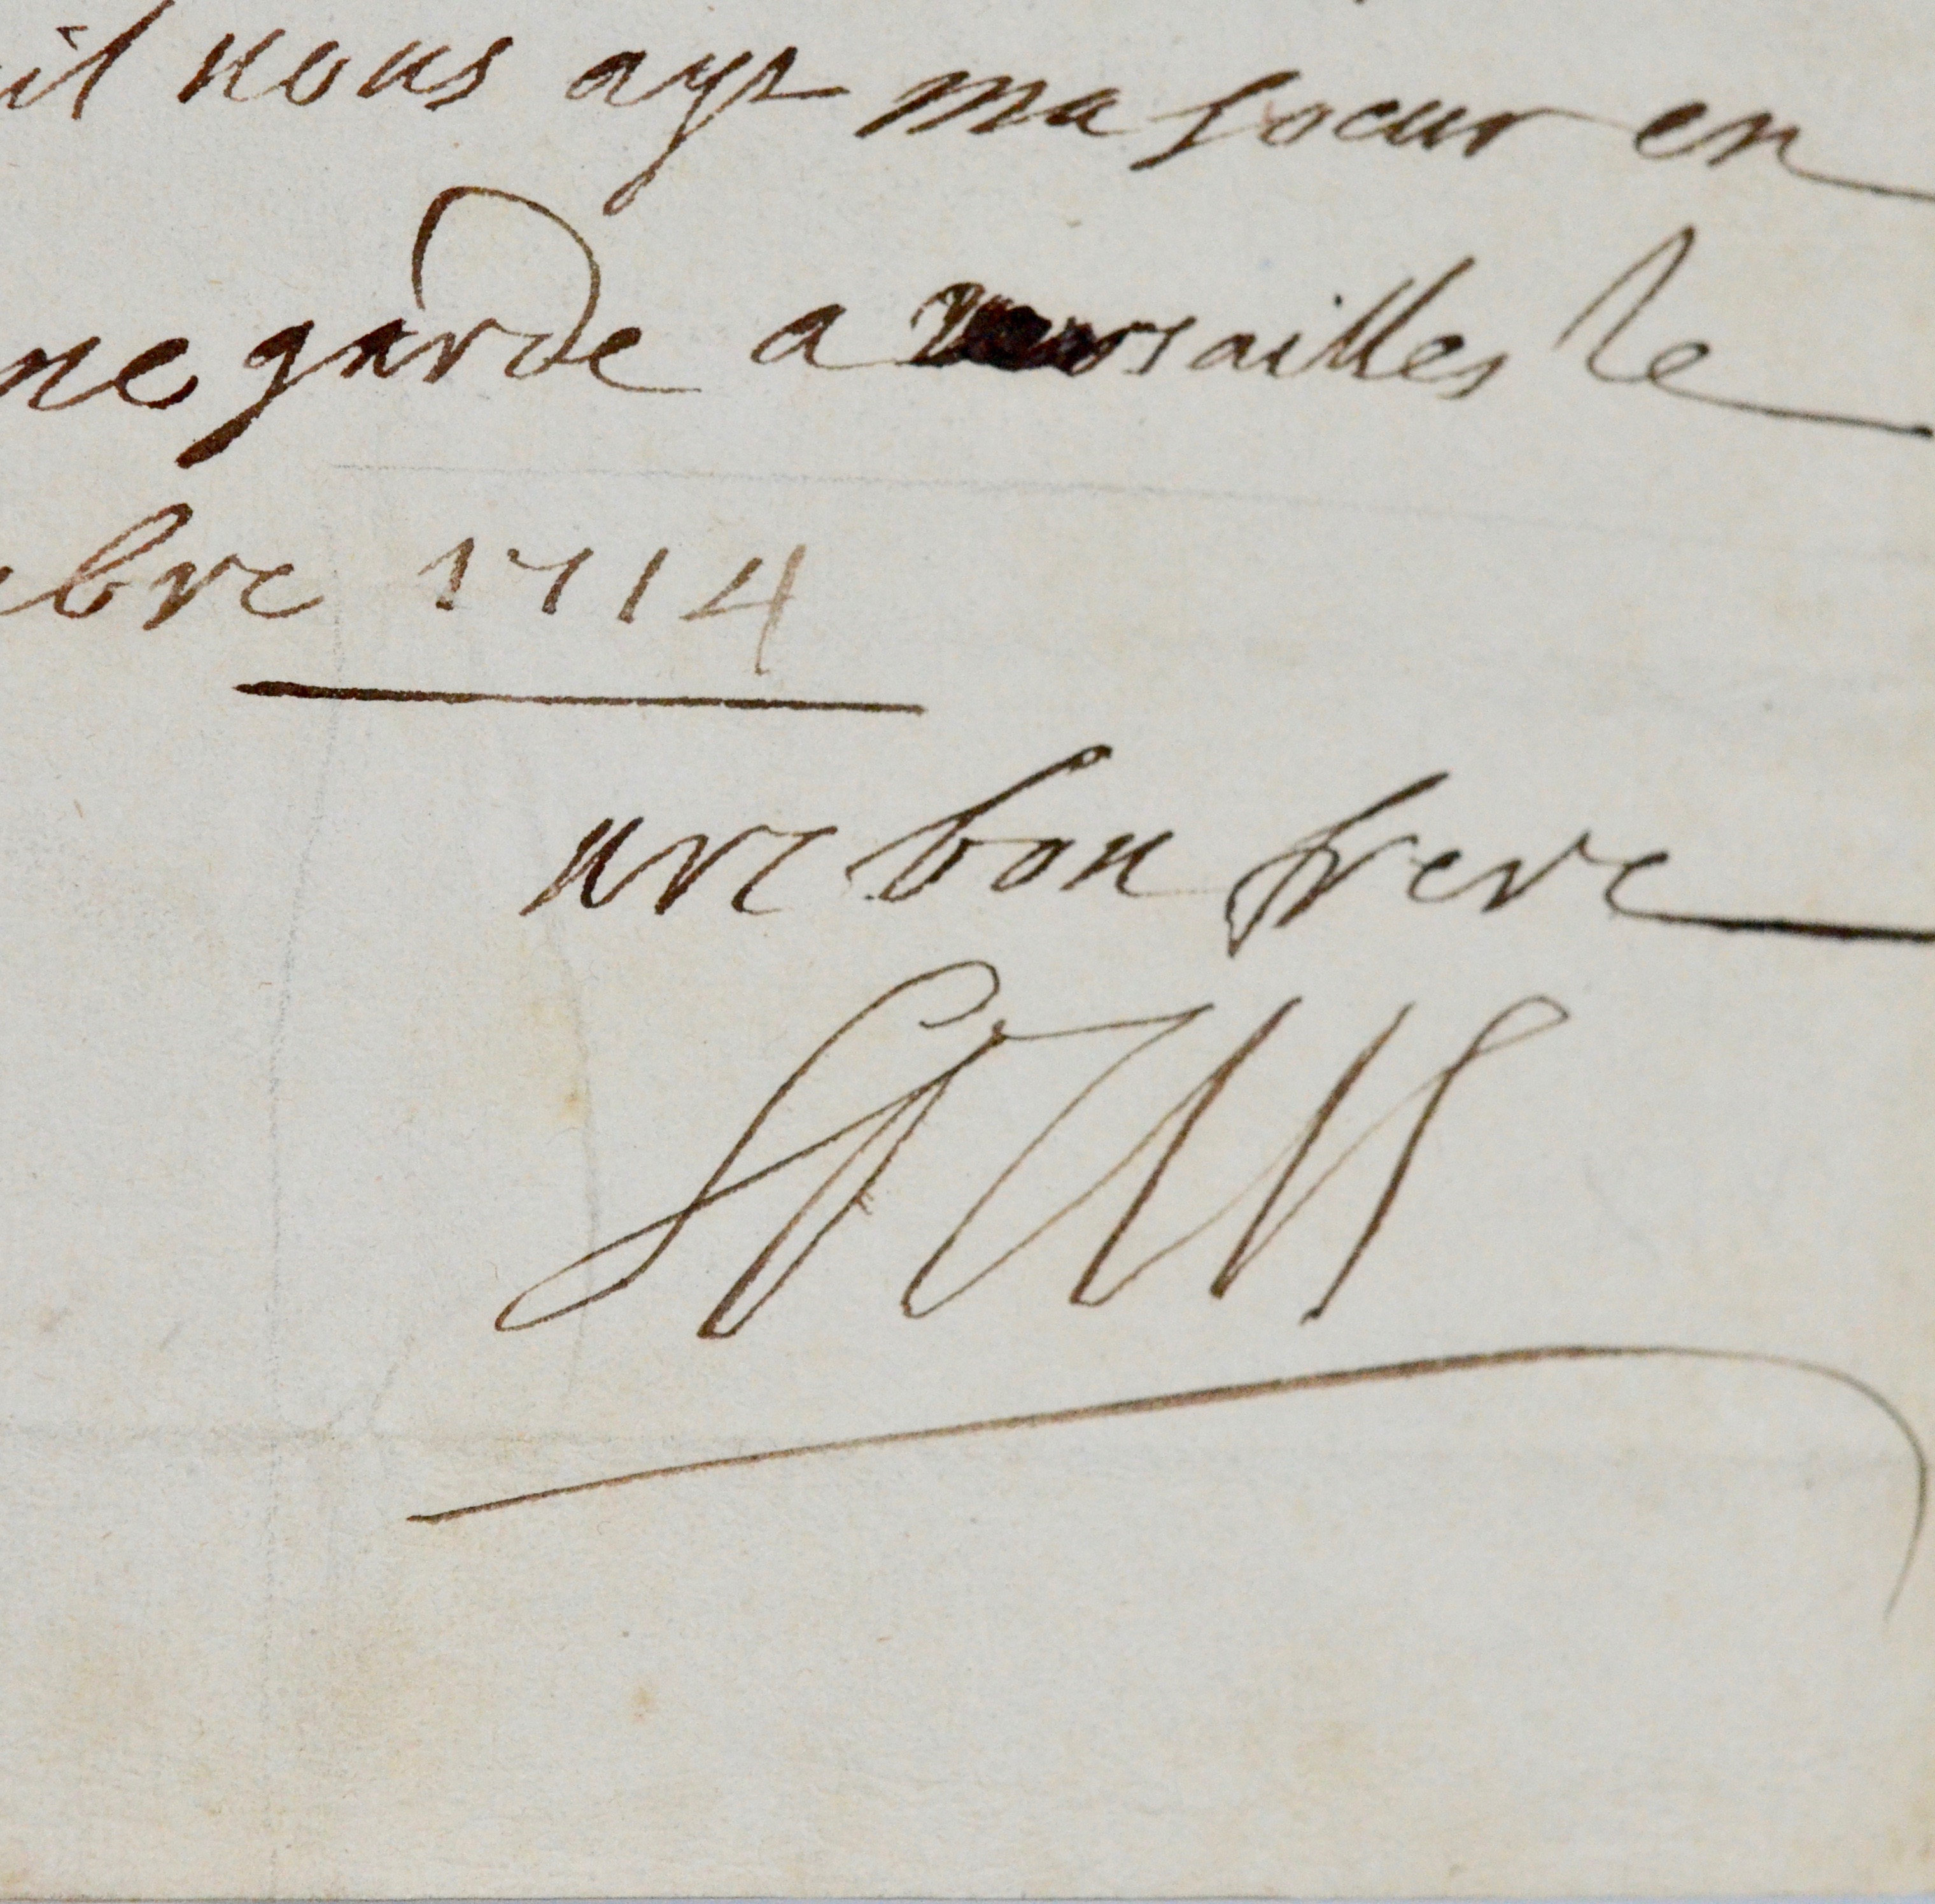 il vous ayt ma soeur en
ne garde a versailles le
bre 1714
vre bon frere
Louis